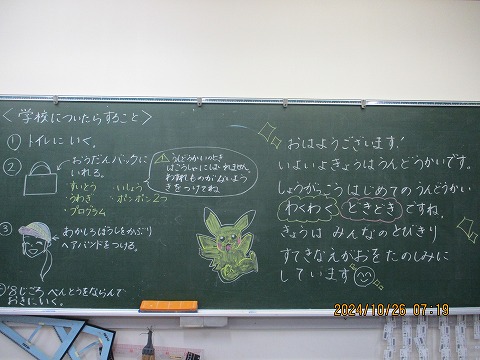 ＜学校についたらすること＞
① トイレにいく。
②
おうだんバックに
いれる。
・すいとう ・いしょう
・うわぎ ・ポンポン2つ
・プログラム
うんどうかいのとき
はこうしゃにはいれません。
わすれものがないよう
きをつけてね。
③
あかしろぼうしをかぶり
ヘアバンドをつける。
8じごろ べんとうをならんで
おきにいく。
おはようございます!
いよいよきょうはうんどうかいです。
しょうがっこうはじめてのうんどうかい
わくわく どきどきですね。
きょうは みんなのとびきり
すてきなえがおをたのしみに
しています
2024/10/26 07:19